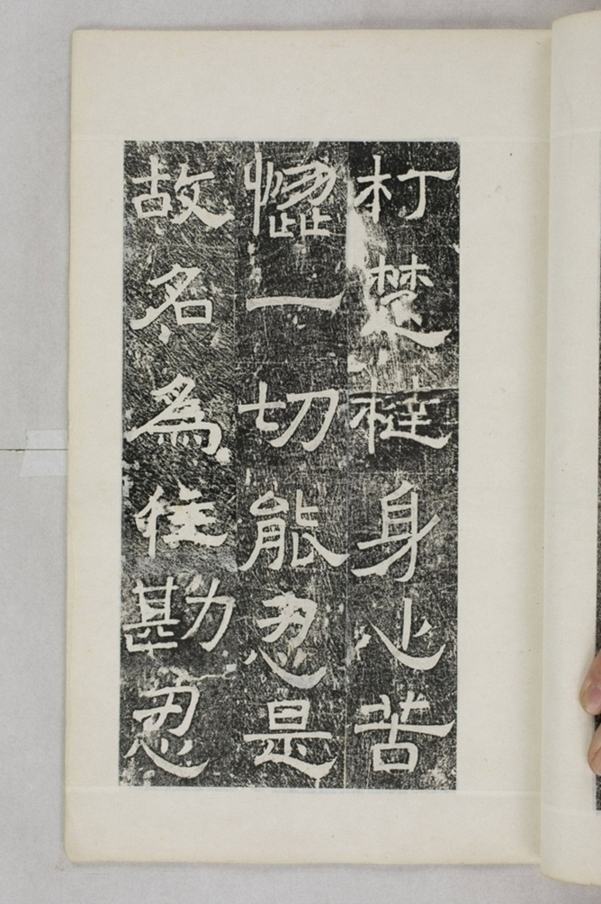 朾楚橽身心苦
惱一切能忍是
故名為住勘忍